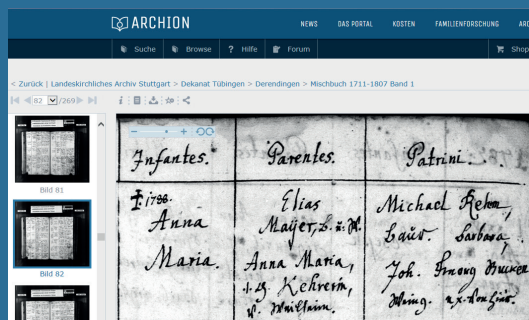 ARCHION
NEWS DAS PORTAL KOSTEN FAMILIENFORSCHUNG ARC
Suche Browse ? Hilfe Forum Shop
< Zurück | Landeskirchliches Archiv Stuttgart > Dekanat Tübingen > Derendingen > Mischbuch 1711-1807 Band 1
82 /269
Bild 81
Bild 82
Infantes. Parentes. Patrini.
Elias Michael
Anna Mayer, Baur. Barbara
Maria. Anna Maria, Joh.